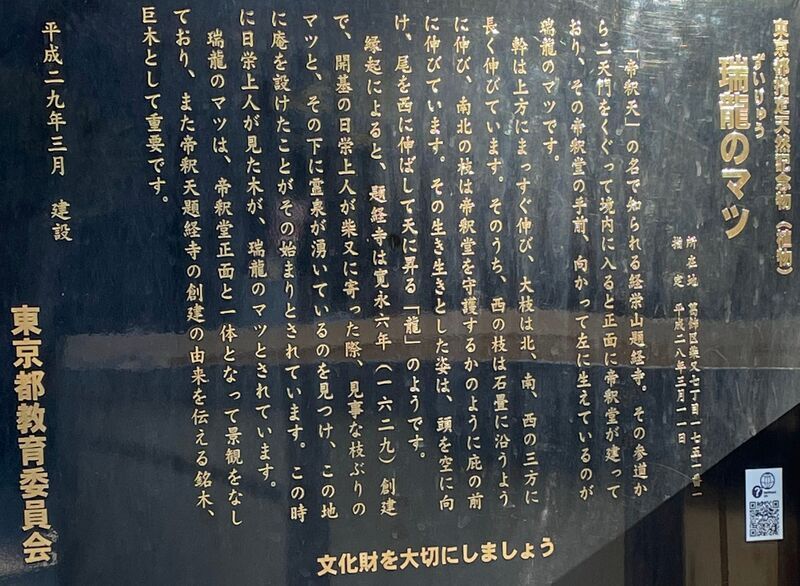 東京都指定天然記念物（植物）
ずいりゅう
瑞龍のマツ
所在地　葛飾区柴又七丁目一七五一番一
指　定　平成二八年三月一一日
「帝釈天」の名で知られる経栄山題経寺。その参道か
ら二天門をくぐって境内に入ると正面に帝釈堂が建って
おり、その帝釈堂の手前、向かって左に生えているのが
瑞龍のマツです。
幹は上方にまっすぐ伸び、大枝は北、南、西の三方に
長く伸びています。そのうち、西の枝は石畳に沿うよう
に伸び、南北の枝は帝釈堂を守護するかのように庇の前
に伸びています。その生き生きとした姿は、頭を空に向
け、尾を西に伸ばして天に昇る「龍」のようです。
縁起によると、題経寺は寛永六年（一六二九）創建
で、開基の日栄上人が柴又に寄った際、見事な枝ぶりの
マツと、その下に霊泉が湧いているのを見つけ、この地
に庵を設けたことがその始まりとされています。この時
に日栄上人が見た木が、瑞龍のマツとされています。
瑞龍のマツは、帝釈堂正面と一体となって景観をなし
ており、また帝釈天題経寺の創建の由来を伝える銘木、
巨木として重要です。
平成二九年三月　建設
東京都教育委員会
文化財を大切にしましょう